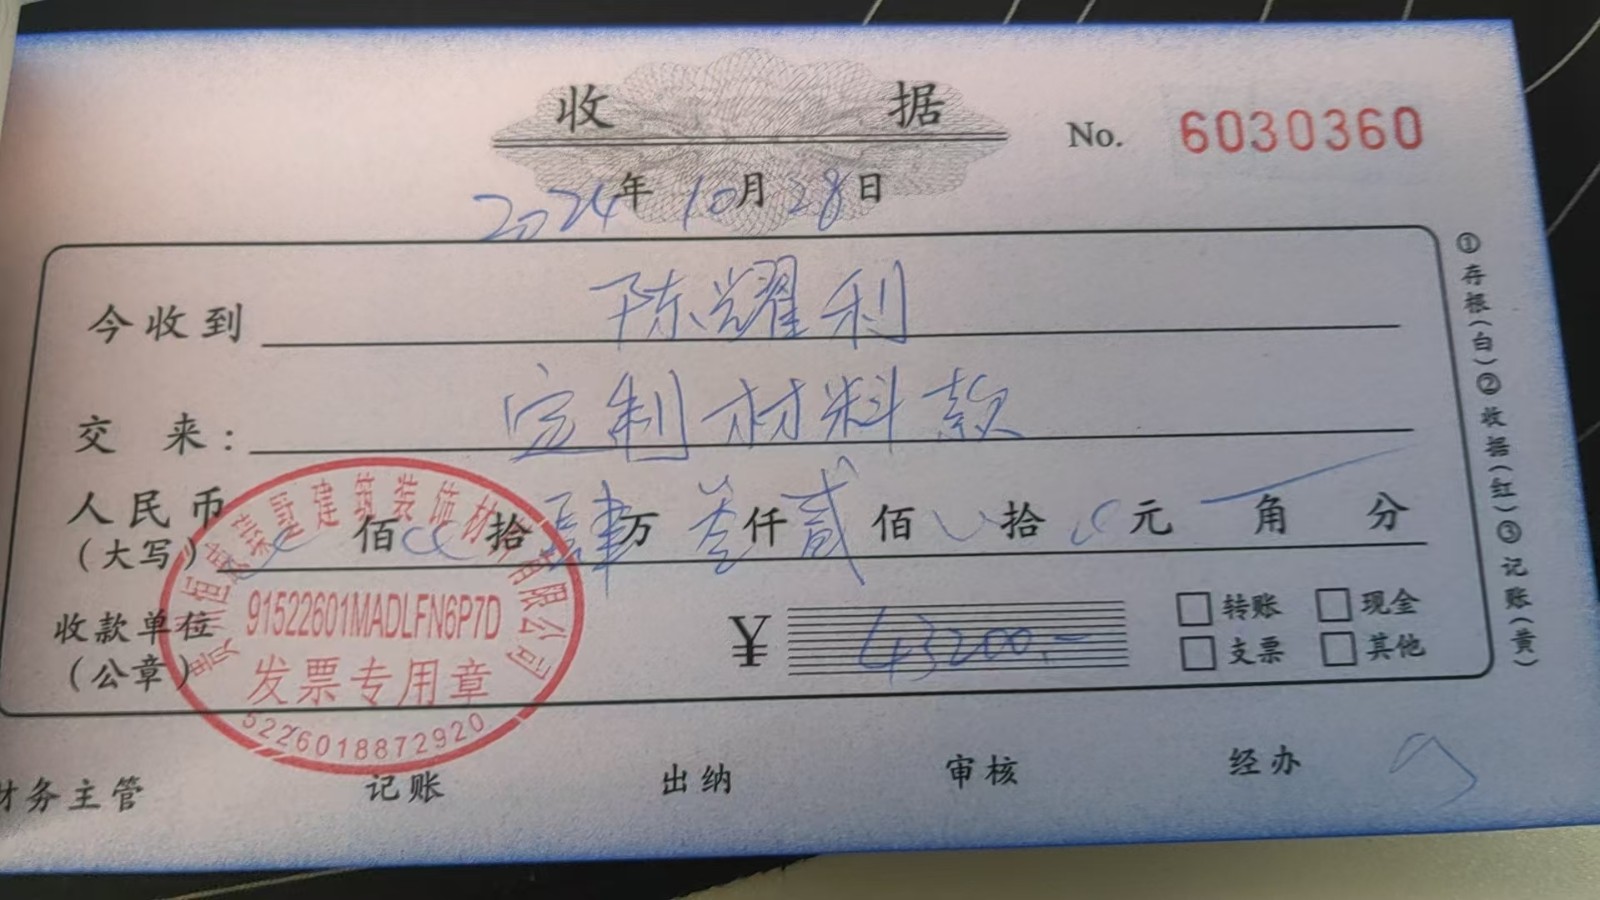 收 据
No. 6030360
2024年10月28日
今收到 陈耀利
交 来: 定制材料款
人民币(大写) 佰 拾肆万叁仟贰佰 拾 元 角 分
收款单位(公章)
¥ 43200.-
转账 现金
支票 其他
建筑装饰材 有限公司
91522601MADLFN6P7D
发票专用章
5226018872920
财务主管 记账 出纳 审核 经办
①存根(白)②收据(红)③记账(黄)